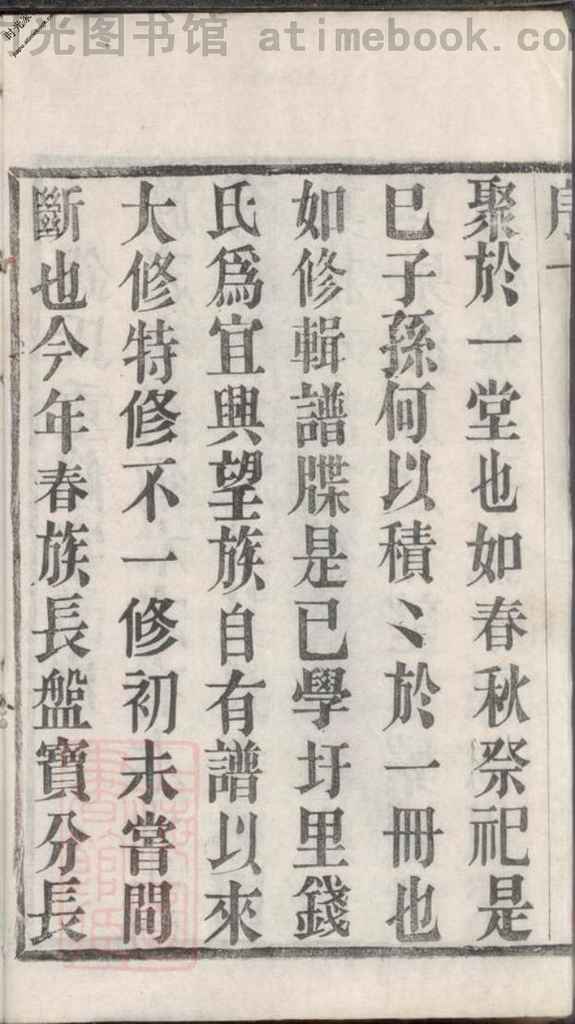 光图书馆 atimebook.com
序一
聚於一堂也如春秋祭祀是
已子孫何以積〻於一冊也
如修輯譜牒是已學圩里錢
氏爲宜興望族自有譜以來
大修特修不一修初未嘗間
斷也今年春族長盤寶分長